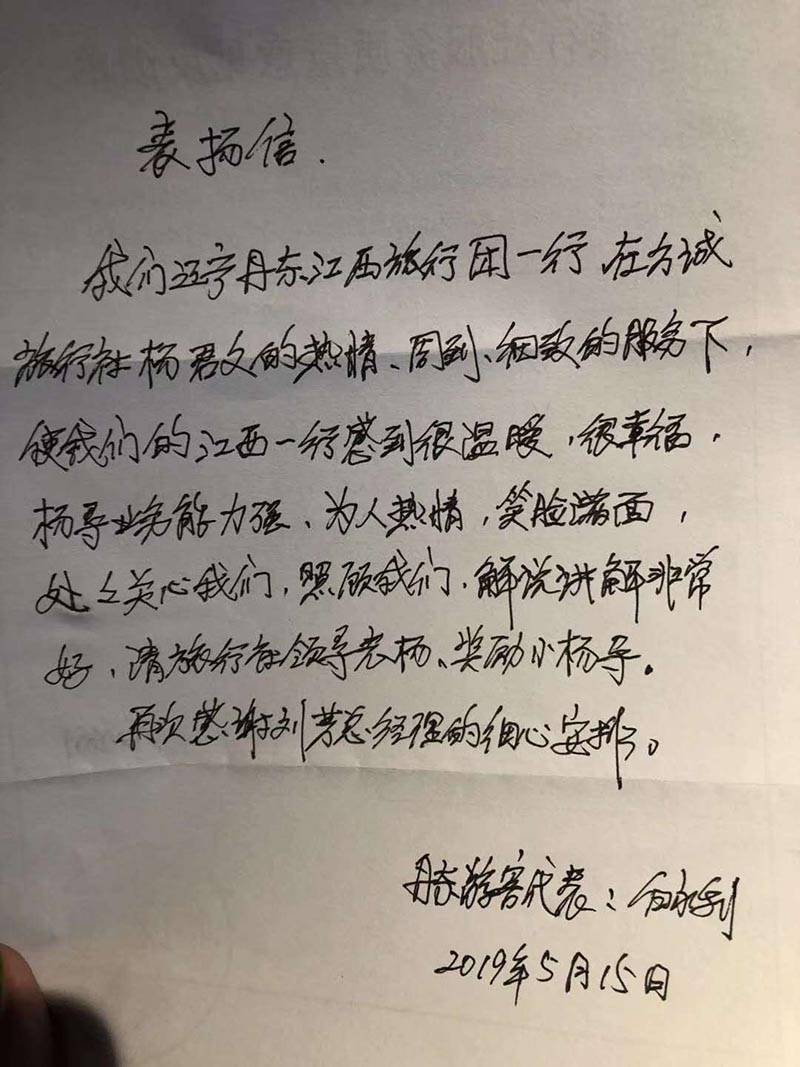 表扬信.
我们辽宁丹东江西旅行团一行 在方诚
旅行社杨君文的热情、周到、细致的服务下，
使我们的江西一行感到很温暖，很幸福，
杨导业务能力强、为人热情，笑脸满面，
处处关心我们，照顾我们，解说讲解非常
好、请旅行社领导表扬、奖励小杨导。
再次感谢刘芳总经理的细心安排。
丹东游客代表：白永利
2019年5月15日